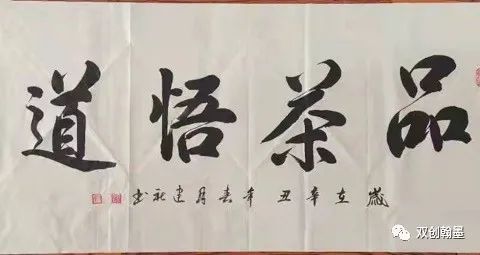 品茶悟道
歲在辛丑年春月建秋书
双创翰墨